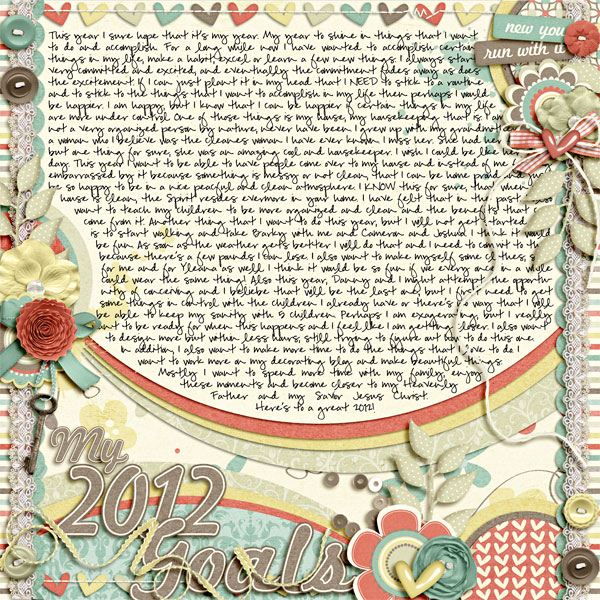 This year I sure hope that it's my year. My year to shine in things that I want
to do and accomplish. For a long while now I have wanted to accomplish certain
things in my life, make a habit, excel or learn a few new things. I always start
very committed and excited, and eventually the commitment fades away as does
the excitement. If I can just plant it in my head that I NEED to stick to a routine
and to stick to the things that I want to accomplish in my life then perhaps I would
be happier. I am happy, but I know that I can be happier if certain things in my life
are more under control. One of those things is my house, my housekeeping, that is. I am
not a very organized person by nature, never have been. I grew up with my grandmother
a woman who I believe was the cleanest woman I have ever known. I miss her. She had her
but one thing for sure, she was an amazing cook and housekeeper. I wish I could be like her
day. This year I want to be able to have people come over to my house and instead of me
embarrassed by it because something is messy or not clean, that I can be home and
be so happy to be in a nice peaceful and clean atmosphere. I KNOW this for sure, that when
house is clean, the Spirit resides evermore in your home. I have felt that in the past.
want to teach my children to be more organized and clean and the benefits that
come from it. Another thing that I want to do this year, but I will not get started
is to start walking and take Barky with me and Cameron and Joshua. I think it would
be fun. As soon as the weather gets better I will do that and I need to commit to th
because there's a few pounds I can lose. I also want to make myself some clothes, s
for me and for Ileana as well. I think it would be so fun if we every once in a while
could wear the same thing! Also this year, Danny and I might attempt the opportu
nity of conceiving, and I believe that will be the last one, but I first need to get
some things in control with the children I already have or there's no way that I will
be able to keep my sanity with 5 children. Perhaps I am exagerating, but I really
want to be ready for when this happens and I feel like I am getting closer. I also want
to design more but within less hours, still trying to figure out how to do this one.
in addition, I also want to make more time to do the things that I love to do. I
want to work more on my decorating blog and make beautiful things.
Mostly I want to spend more time with my family, enjoy
these moments and become closer to my Heavenly
Father and my Savior Jesus Christ.
Here's to a great 2012!
new you
run with it
My
2012
Goals